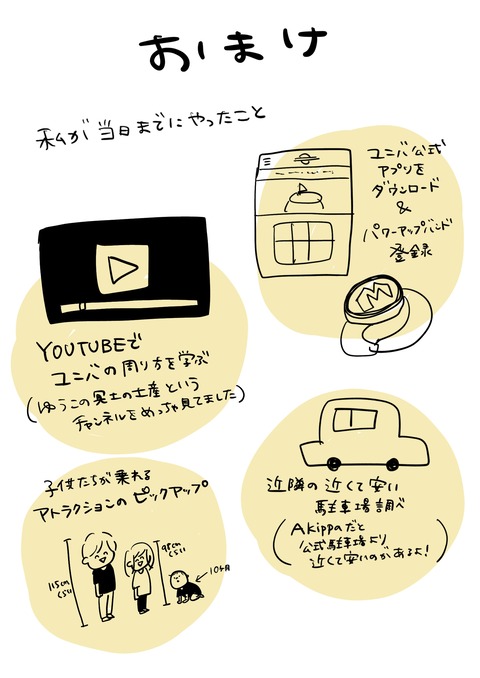 おまけ
私が当日までにやったこと
ユニバ公式
アプリを
ダウンロード
&
パワーアップバンド
登録
M
YOUTUBEで
ユニバの周り方を学ぶ
(ゆうこの冥土の土産という
チャンネルをめっちゃ見てました)
子供たちが乗れる
アトラクションのピックアップ
115cm
くらい
95cm
くらい
10ヶ月
近隣の近くて安い
駐車場調べ
(Akippaだと
公式駐車場より
近くて安いのがあるよ!)